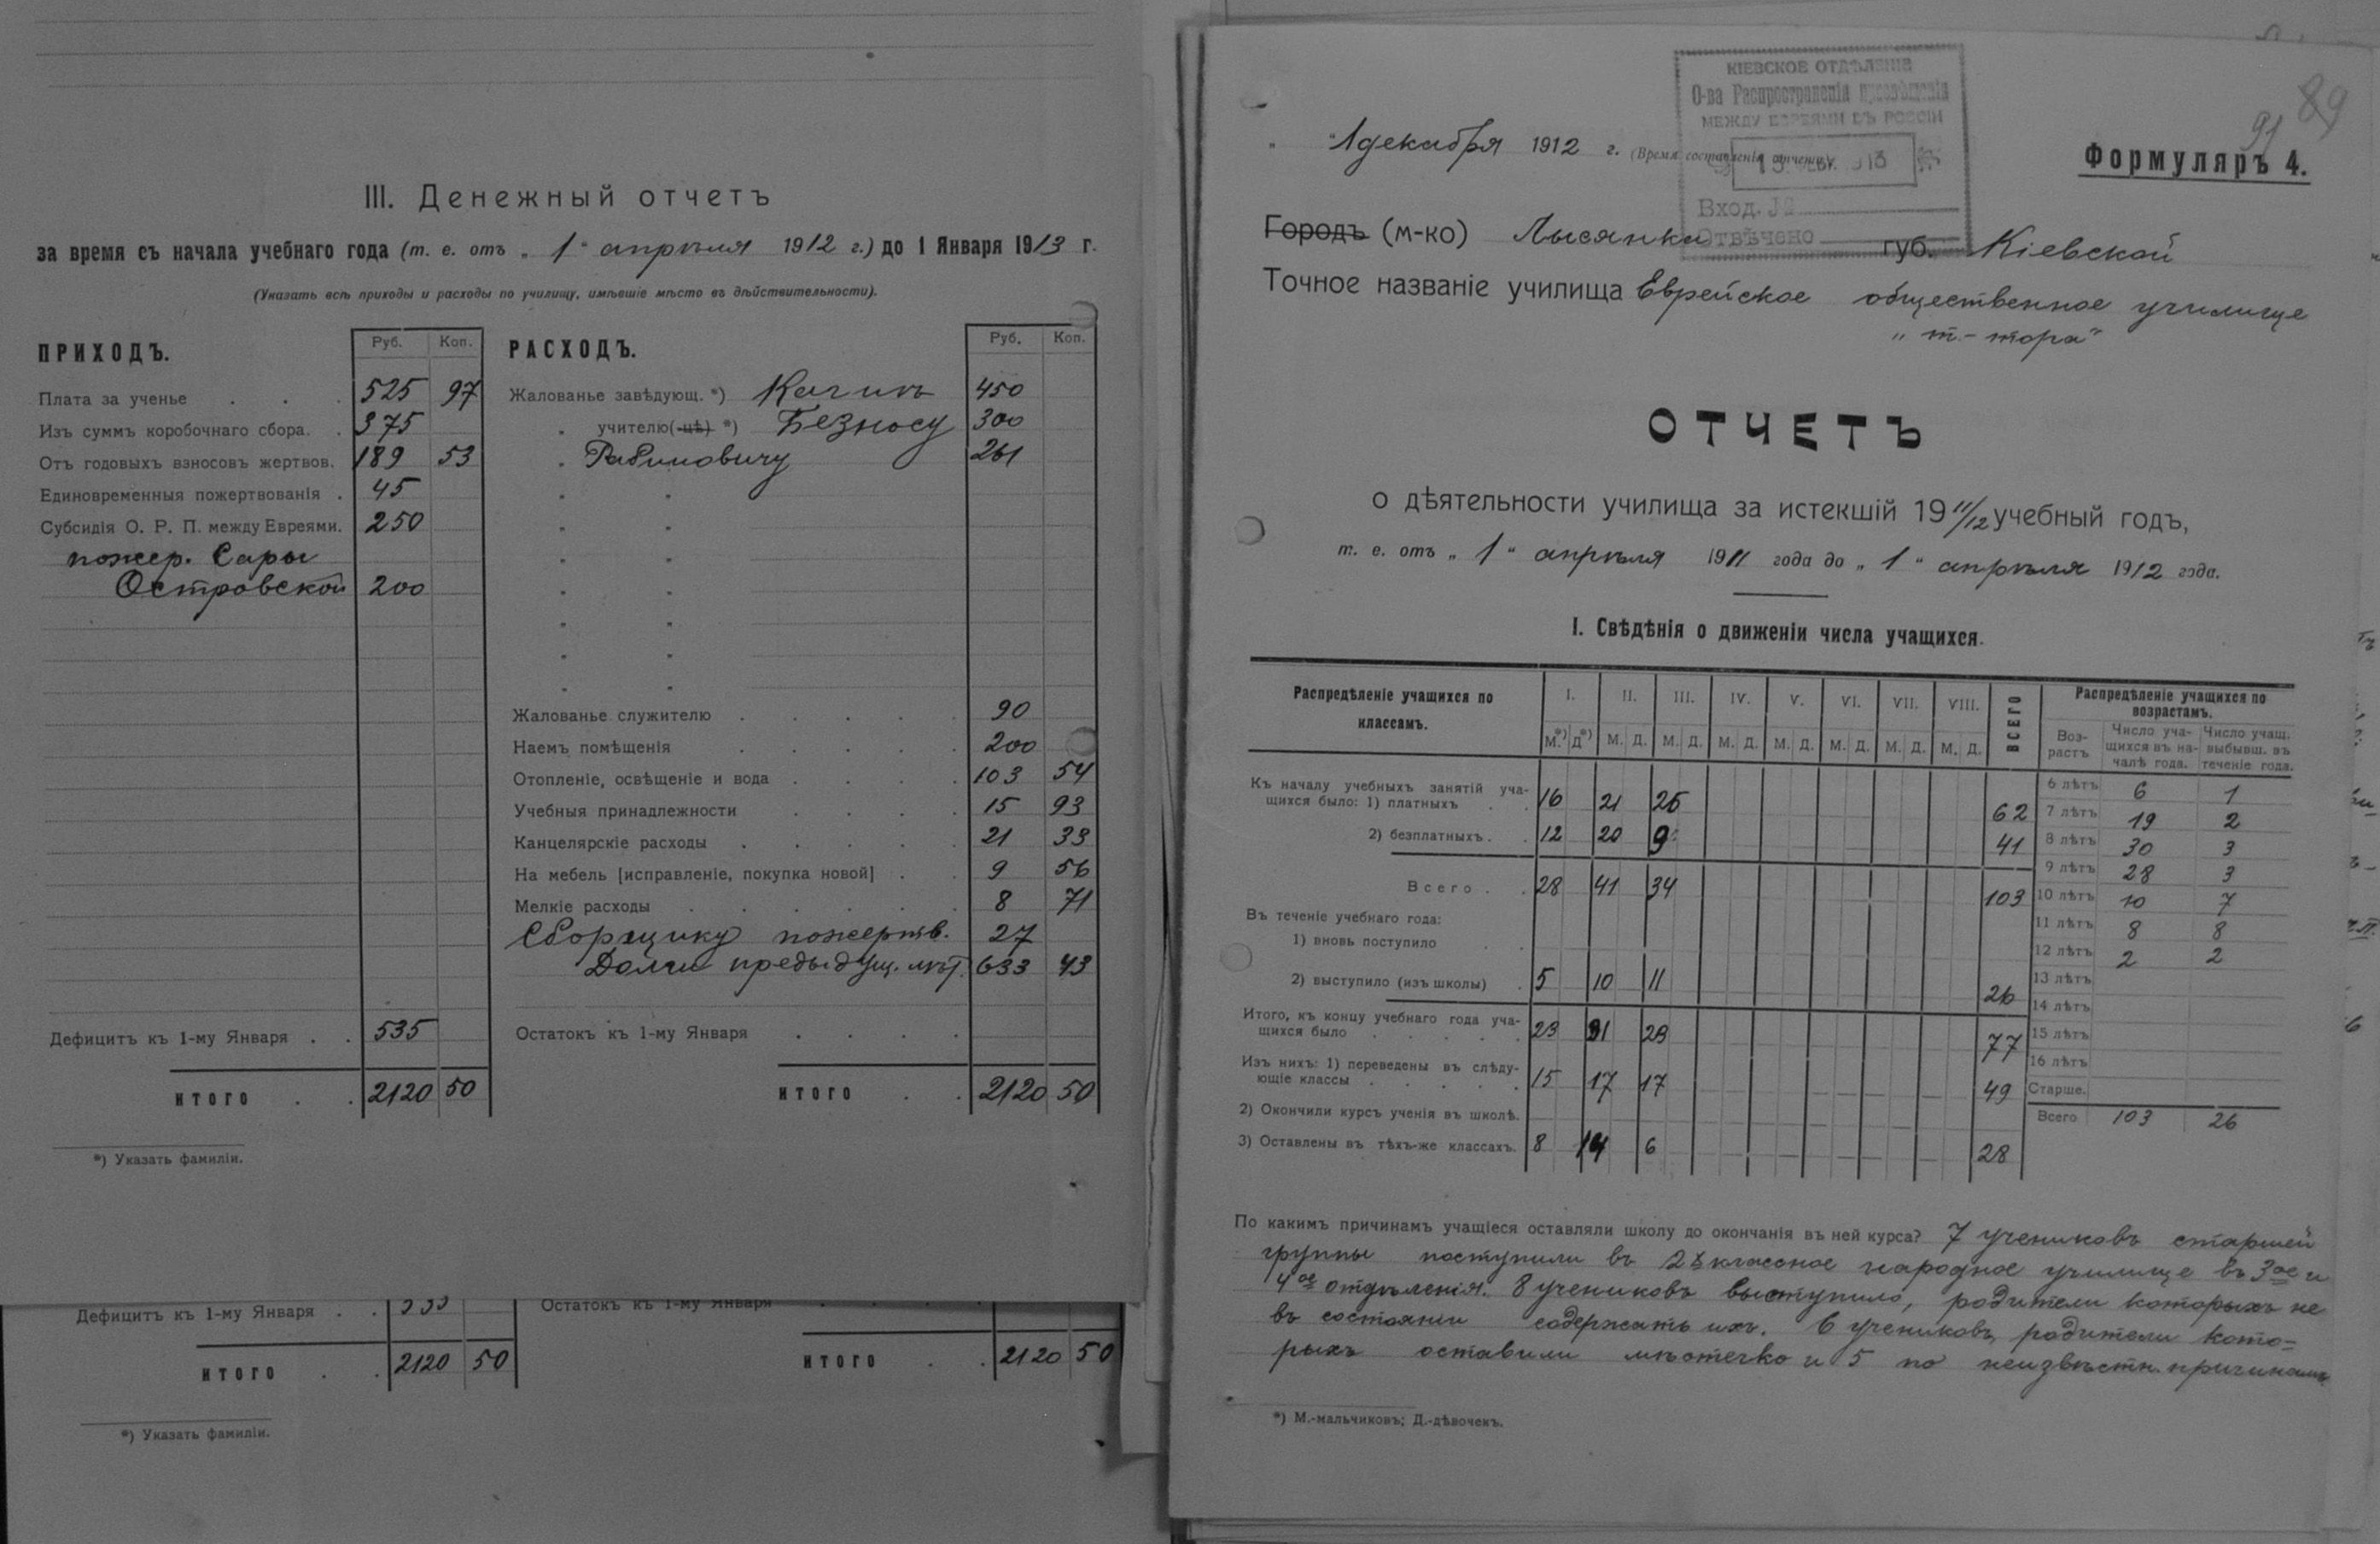 III. Денежный отчетъ
за время съ начала учебнаго года (т. е. отъ „ 1 “ апрѣля 1912 г.) до 1 Января 1913 г.
(Указать всѣ приходы и расходы по училищу, имѣвшіе мѣсто въ дѣйствительности).
ПРИХОДЪ. Руб. Коп.
Плата за ученье . . . 525 97
Изъ суммъ коробочнаго сбора. . 375
Отъ годовыхъ взносовъ жертвов. 189 53
Единовременныя пожертвованія . 45
Субсидія О. Р. П. между Евреями. 250
пожер. Сары
Островской 200
Дефицитъ къ 1-му Января . . 535
ИТОГО . . 2120 50
РАСХОДЪ. Руб. Коп.
Жалованье завѣдующ. *) 450
„ учителю(-цѣ) *) Безносу 300
„ Рабиновичу 261
Жалованье служителю . . . . . 90
Наемъ помѣщенія . . . . . 200
Отопленіе, освѣщеніе и вода . . . . 103 54
Учебныя принадлежности . . . . 15 93
Канцелярскіе расходы . . . . . 21 33
На мебель [исправленіе, покупка новой] . . 9 56
Мелкіе расходы . . . . . . 8 71
Сборщику пожертв. 27
Долги предыдущ. лѣт. 633 43
Остатокъ къ 1-му Января . . . .
ИТОГО . . 2120 50
*) Указать фамиліи.
Дефицитъ къ 1-му Января . . 535
Остатокъ къ 1-му Января . . . .
ИТОГО . . 2120 50
ИТОГО . . 2120 50
*) Указать фамиліи.
КІЕВСКОЕ ОТДѢЛЕНІЕ
О-ва Распространенія просвѣщенія
МЕЖДУ ЕВРЕЯМИ ВЪ РОССІИ
Вход. №
Отвѣчено
89
91
„ 1 декабря 1912 г. (Время составленія отчета).
Формуляръ 4.
Городъ (м-ко) Лысянка губ. Кіевской
Точное названіе училища Еврейское общественное училище
„т-тора“
ОТЧЕТЪ
о дѣятельности училища за истекшій 19 11/12 учебный годъ,
т. е. отъ „ 1 “ апрѣля 1911 года до „ 1 “ апрѣля 1912 года.
I. Свѣдѣнія о движеніи числа учащихся.
Распредѣленіе учащихся по классамъ. I. II. III. IV. V. VI. VII. VIII. ВСЕГО
М.*) Д*) М. Д. М. Д. М. Д. М. Д. М. Д. М. Д. М. Д.
Къ началу учебныхъ занятій уча-
щихся было: 1) платныхъ . . 16 21 25 62
2) безплатныхъ. . 12 20 9 41
Всего . . 28 41 34 103
Въ теченіе учебнаго года:
1) вновь поступило . .
2) выступило (изъ школы) . 5 10 11 26
Итого, къ концу учебнаго года уча-
щихся было . . . . . 23 31 23 77
Изъ нихъ: 1) переведены въ слѣду-
ющіе классы . . . . . 15 17 17 49
2) Окончили курсъ ученія въ школѣ.
3) Оставлены въ тѣхъ-же классахъ. 8 14 6 28
Распредѣленіе учащихся по возрастамъ.
Воз-растъ Число уча-щихся въ на-чалѣ года. Число учащ. выбывш. въ теченіе года.
6 лѣтъ 6 1
7 лѣтъ 19 2
8 лѣтъ 30 3
9 лѣтъ 28 3
10 лѣтъ 10 7
11 лѣтъ 8 8
12 лѣтъ 2 2
13 лѣтъ
14 лѣтъ
15 лѣтъ
16 лѣтъ
Старше.
Всего 103 26
По какимъ причинамъ учащіеся оставляли школу до окончанія въ ней курса? 7 учениковъ старшей
группы поступили въ 2х классное народное училище въ 3ое и
4ое отдѣленія. 8 учениковъ выступило, родители которыхъ не
въ состояніи содержать ихъ. 6 учениковъ, родители кото=
рыхъ оставили мѣстечко и 5 по неизвѣстн. причинамъ
*) М.-мальчиковъ; Д.-дѣвочекъ.